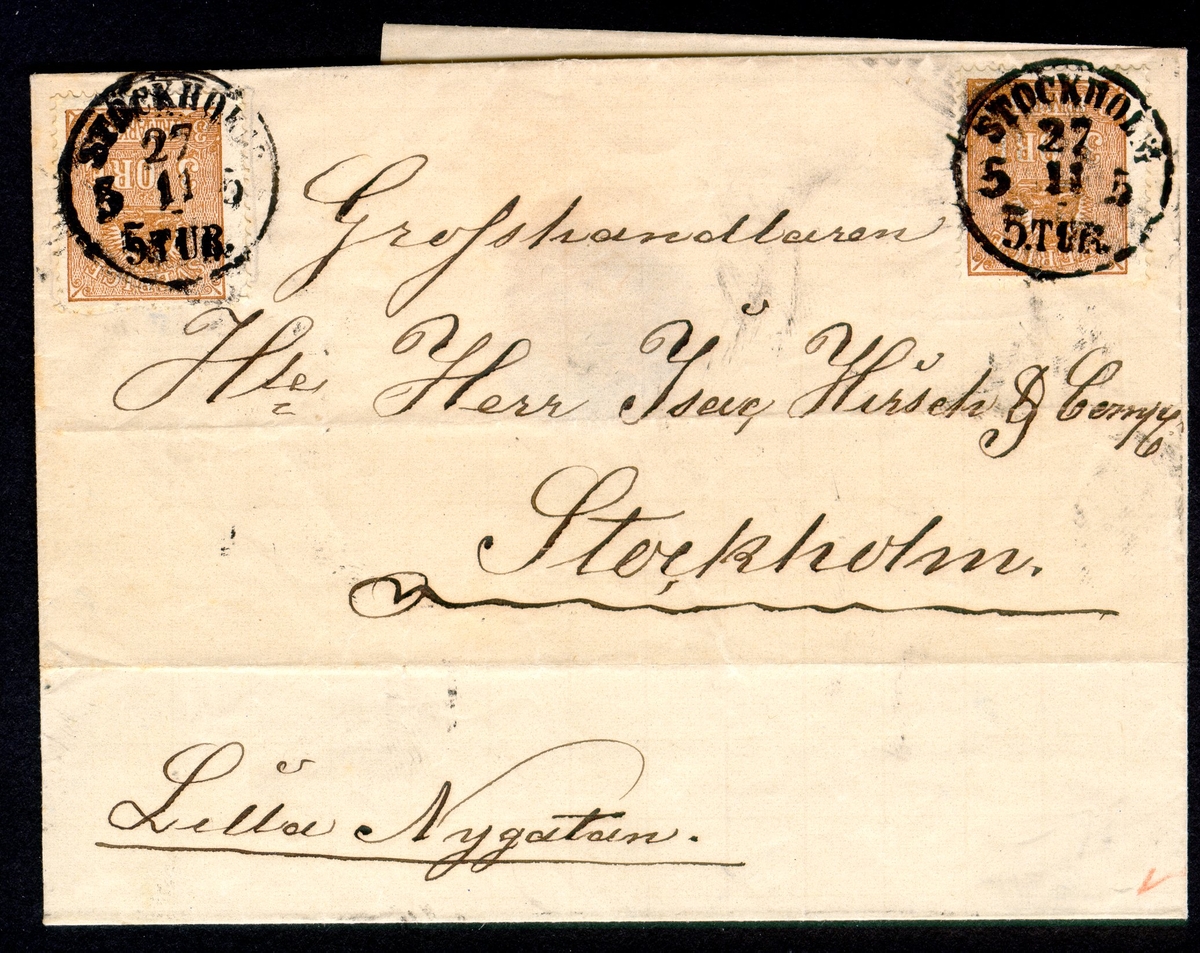 STOCKHOLM
27
5 11 5
5.TUR.
STOCKHOLM
27
5 11 5
5.TUR.
Grosshandlaren
Hte Herr Isac Hirsch & Comp
Stockholm.
Lilla Nygatan.